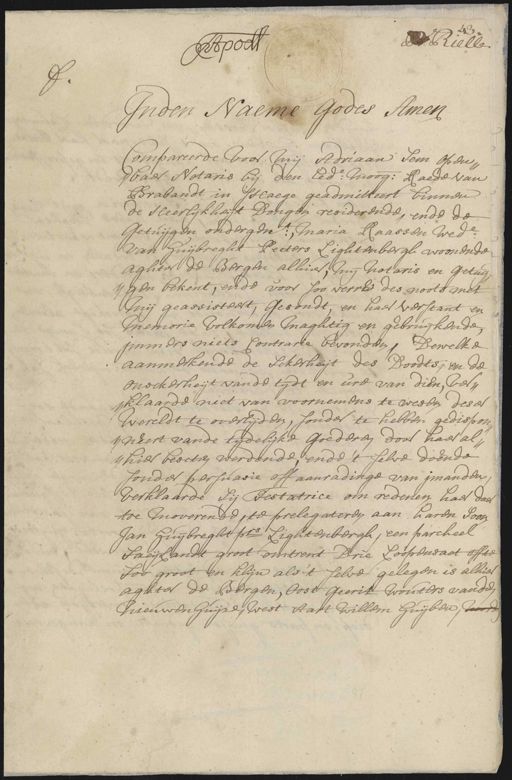 43.
Rielle.
Jnden Naeme Godes Amen
Compareerde voor mij Adriaan Sem open„
„baer Notaris bij den Ed:e Moog: Raede van
Brabandt in Shaege geadmitteert binnen
de Heerlijkheijt Dongen resideerende, ende de
Getuijgen ondergen:t, Maria Raassen Wed:e
van Huijbreght Peeters Lightenbergh woonende
aghter de Bergen alhier, mij Notaris en getuij„
„gen bekent, ende voor soo verre des noots met
mij geassisteert, Gesondt, en haer verstant en
memorie volkomen maghtig en gebruijkende,
jmmers niets Contrarie bevonden, Dewelke
aanmerkende de sekerheijt des Doodts, en de
onsekerheijt vande tijdt en uure van dien, ver„
„klaarde niet van voornemens te wesen deser
Wereldt te overlijden, sonder te hebben gedispo„
„neert vande tijdelijke Goederen door haer al„
„hier beseten werdende, ende 't selve doende
sonder persuasie off aanradinge van jmanden,
verklaarde sij Testatrice om redenen haer daer
toe moverende, te prelegateren aan haren Soon
Jan Huijbreght Lightenbergh, een parcheel
Saijlandt groot omtrent Drie Loopensaet offte
soo groot en klijn als 't selve gelegen is alhier
aghter de Bergen, Oost Gerit Wouters vanden
Nieuwenhuijse, West Aart Willem Huijben,